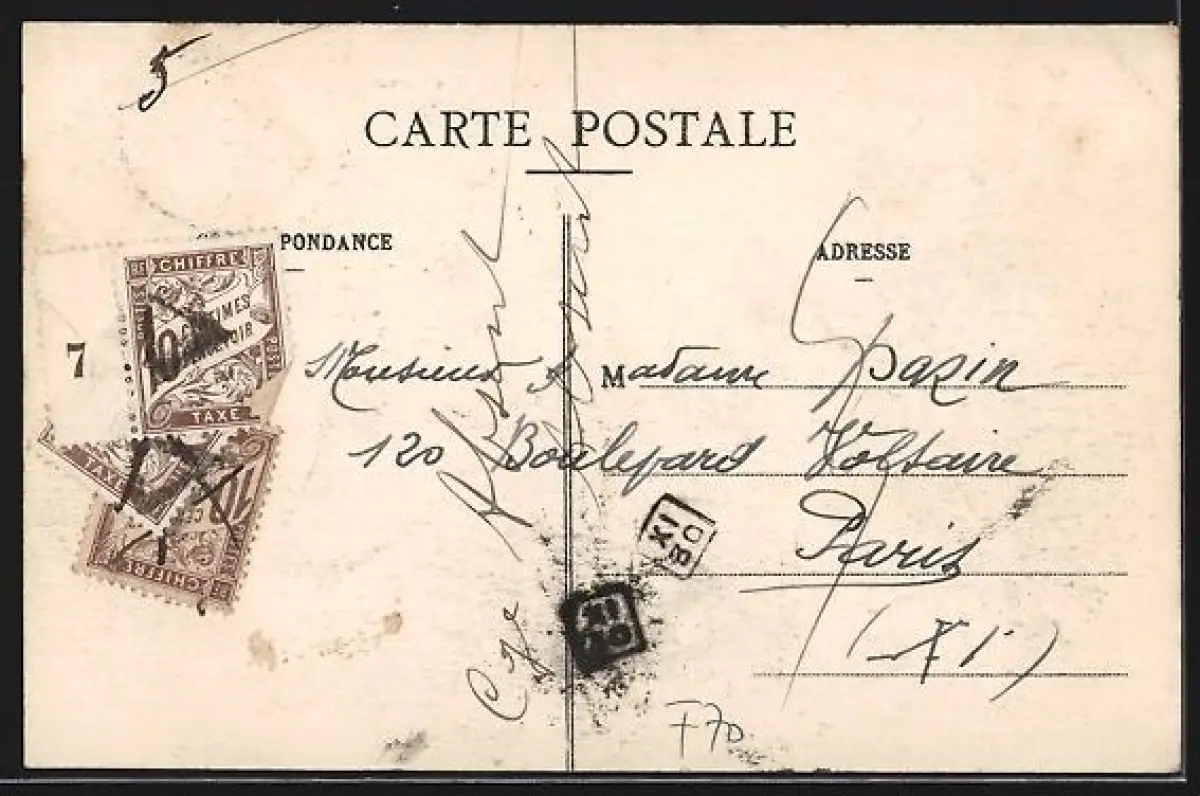 5
CARTE POSTALE
PONDANCE
ADRESSE
CHIFFRE
10 CENTIMES
POSTE
TAXE
7
TAXE
10
CHIFFRE
Monsieur & Madame Spazin
120 Boulevard Voltaire
Paris
(XI)
XI
XI
F70